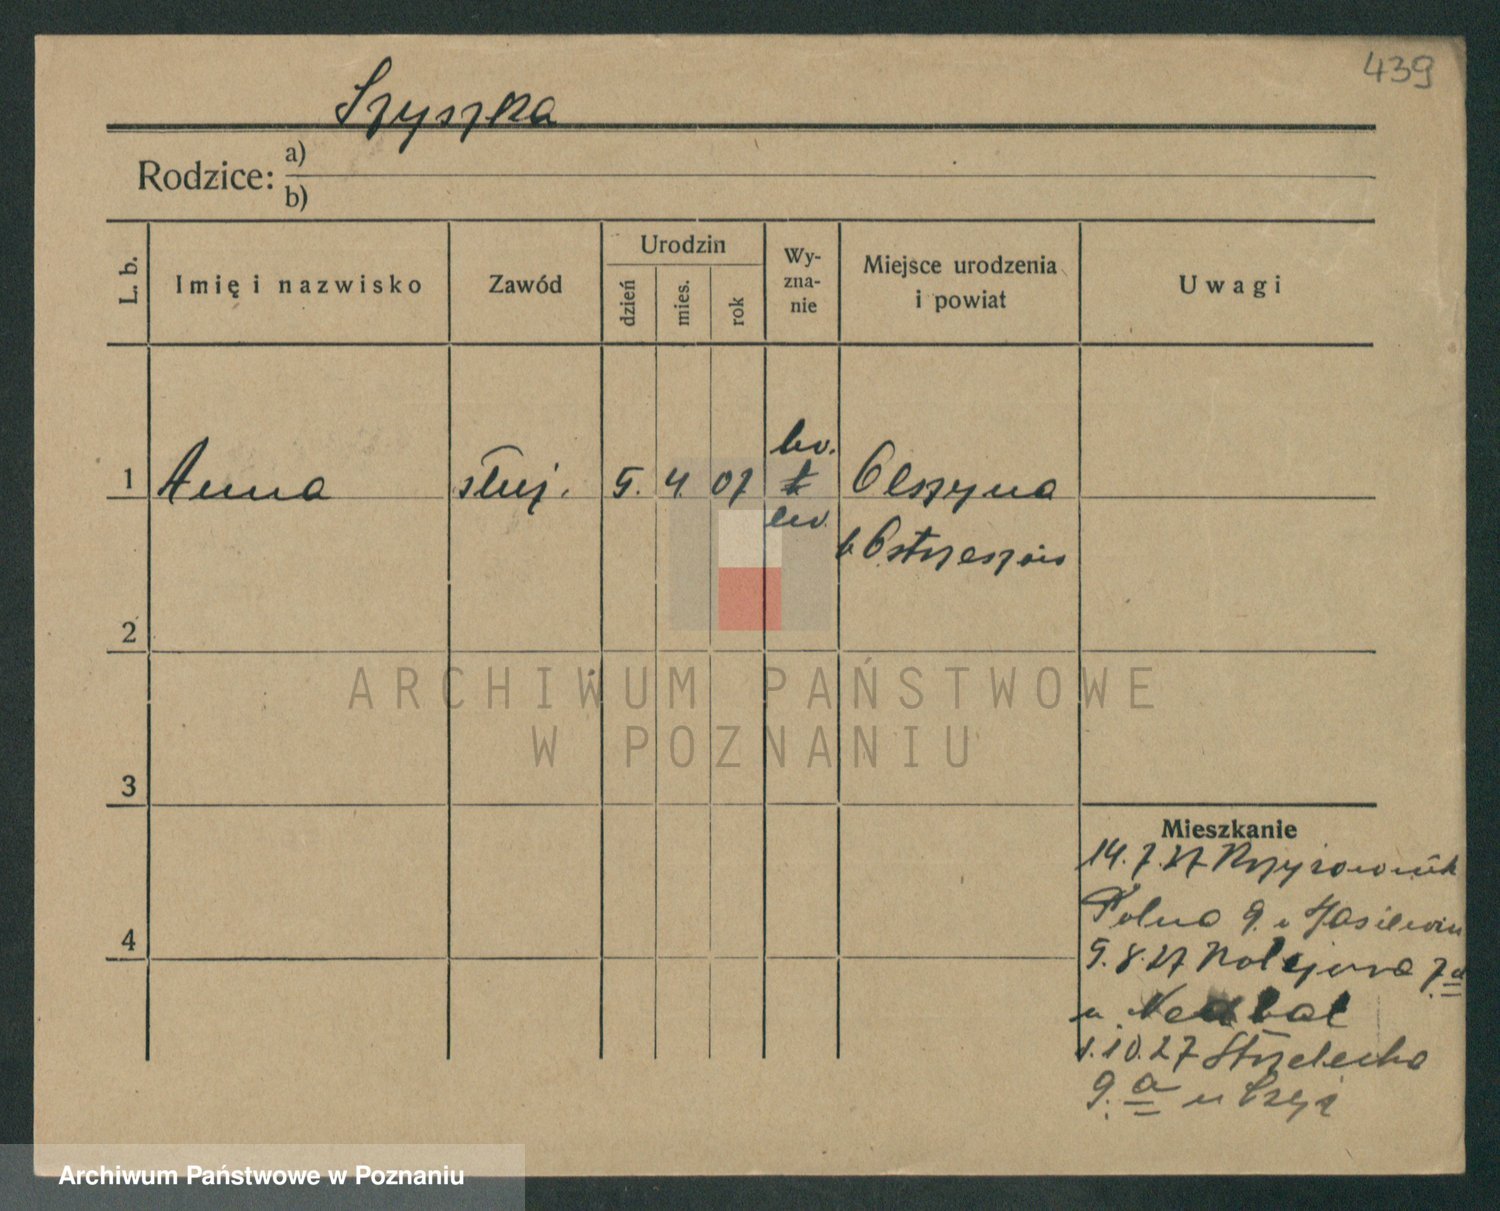 439
Szyszka
Rodzice: a)
b)
L. b.
Imię i nazwisko
Zawód
Urodzin
dzień
mies.
rok
Wy-
zna-
nie
Miejsce urodzenia
i powiat
Uwagi
ew.
1 Anna służ. 5. 4 07 k Olszyna
ew.
p. Ostrzeszów
2
ARCHIWUM PAŃSTWOWE
W POZNANIU
3
Mieszkanie
14.7.27 Krzyżownik
4
Polna 9. u
5.8.27 Kolejowa 7 a
u
1.10.27 Strzelecka
9. a u
Archiwum Państwowe w Poznaniu